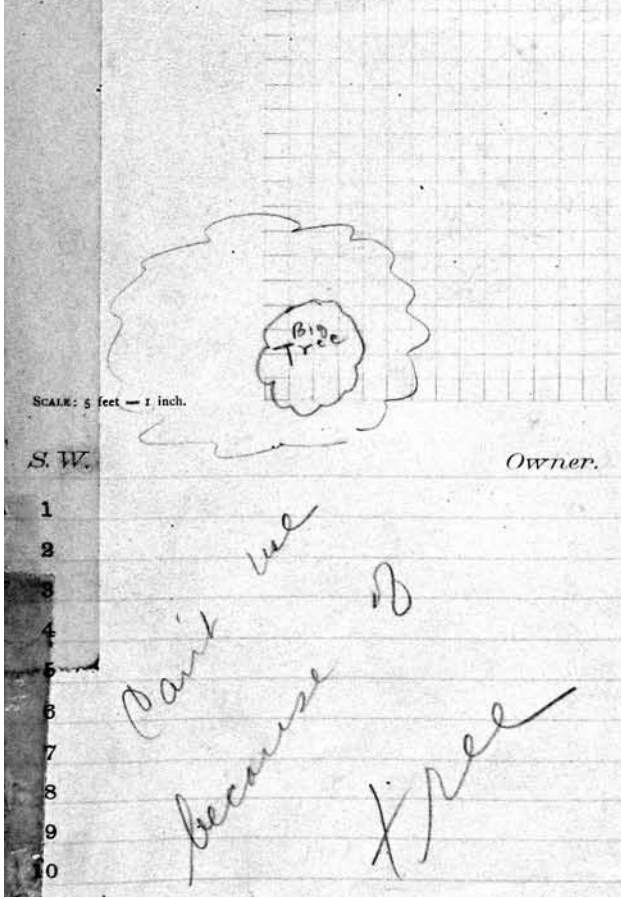 Big
Tree
SCALE: 5 feet = 1 inch.
S. W. Owner.
1
2
3
4
5
6
7
8
9
10
Can't use
because of
tree